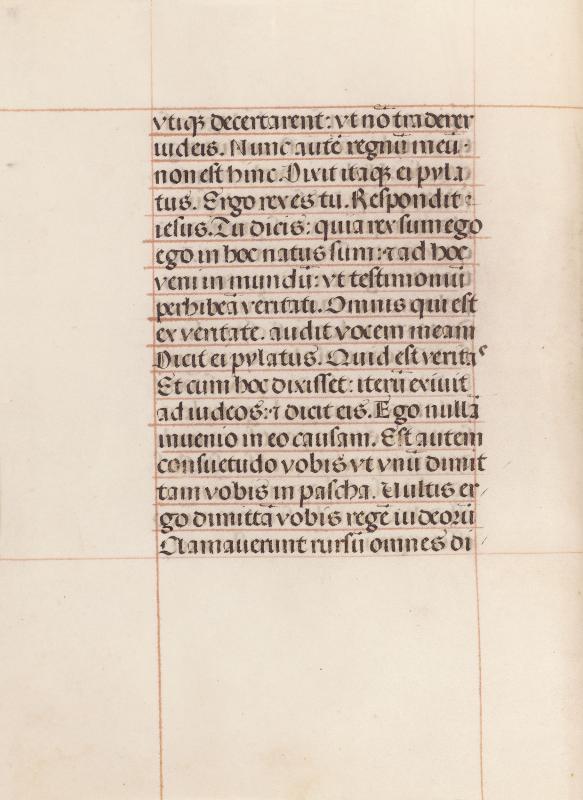 vtiqꝫ decertarent: vt nō traderer
iudeis. Nunc autē regnū meū
non est hinc. Dixit itaqꝫ ei pyla
tus. Ergo rex es tu. Respondit
iesus. Tu dicis: quia rex sum ego
ego in hoc natus sum: ⁊ ad hoc
veni in mundū: vt testimoniū
perhibeā veritati. Omnis qui est
ex veritate. audit vocem meam
Dicit ei pylatus. Quid est veritas
Et cum hoc dixisset: iterū exiuit
ad iudeos: ⁊ dicit eis. Ego nullā
inuenio in eo causam. Est autem
consuetudo vobis vt vnū dimit
tam vobis in pascha. Uultis er
go dimittā vobis regē iudeorū
Clamauerunt rursū omnes di